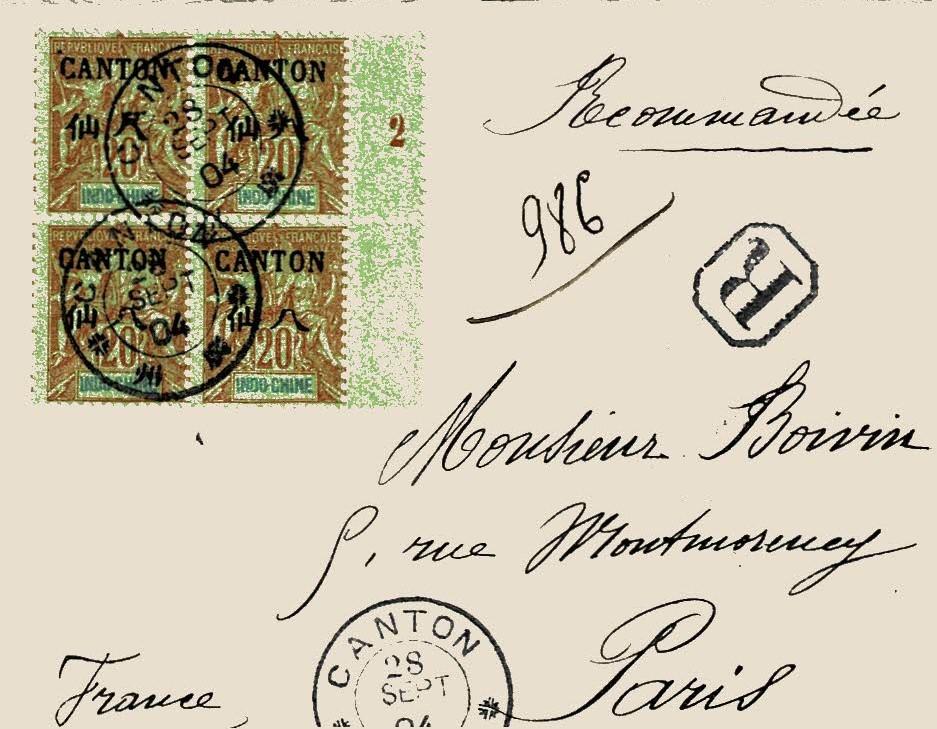 REPVBLIQVE FRANÇAISE REPVBLIQVE FRANÇAISE
CANTON CANTON
仙 仙
20 20
INDO-CHINE INDO-CHINE
2
CANTON
28
SEPT
04
REPVBLIQVE FRANÇAISE REPVBLIQVE FRANÇAISE
CANTON CANTON
仙 八 仙 八
20 20
INDO-CHINE INDO-CHINE
CANTON
28
SEPT
04
州
Recommandée
986
R
Monsieur Boivin
5, rue Montmorency
Paris
France
CANTON
28
SEPT
04